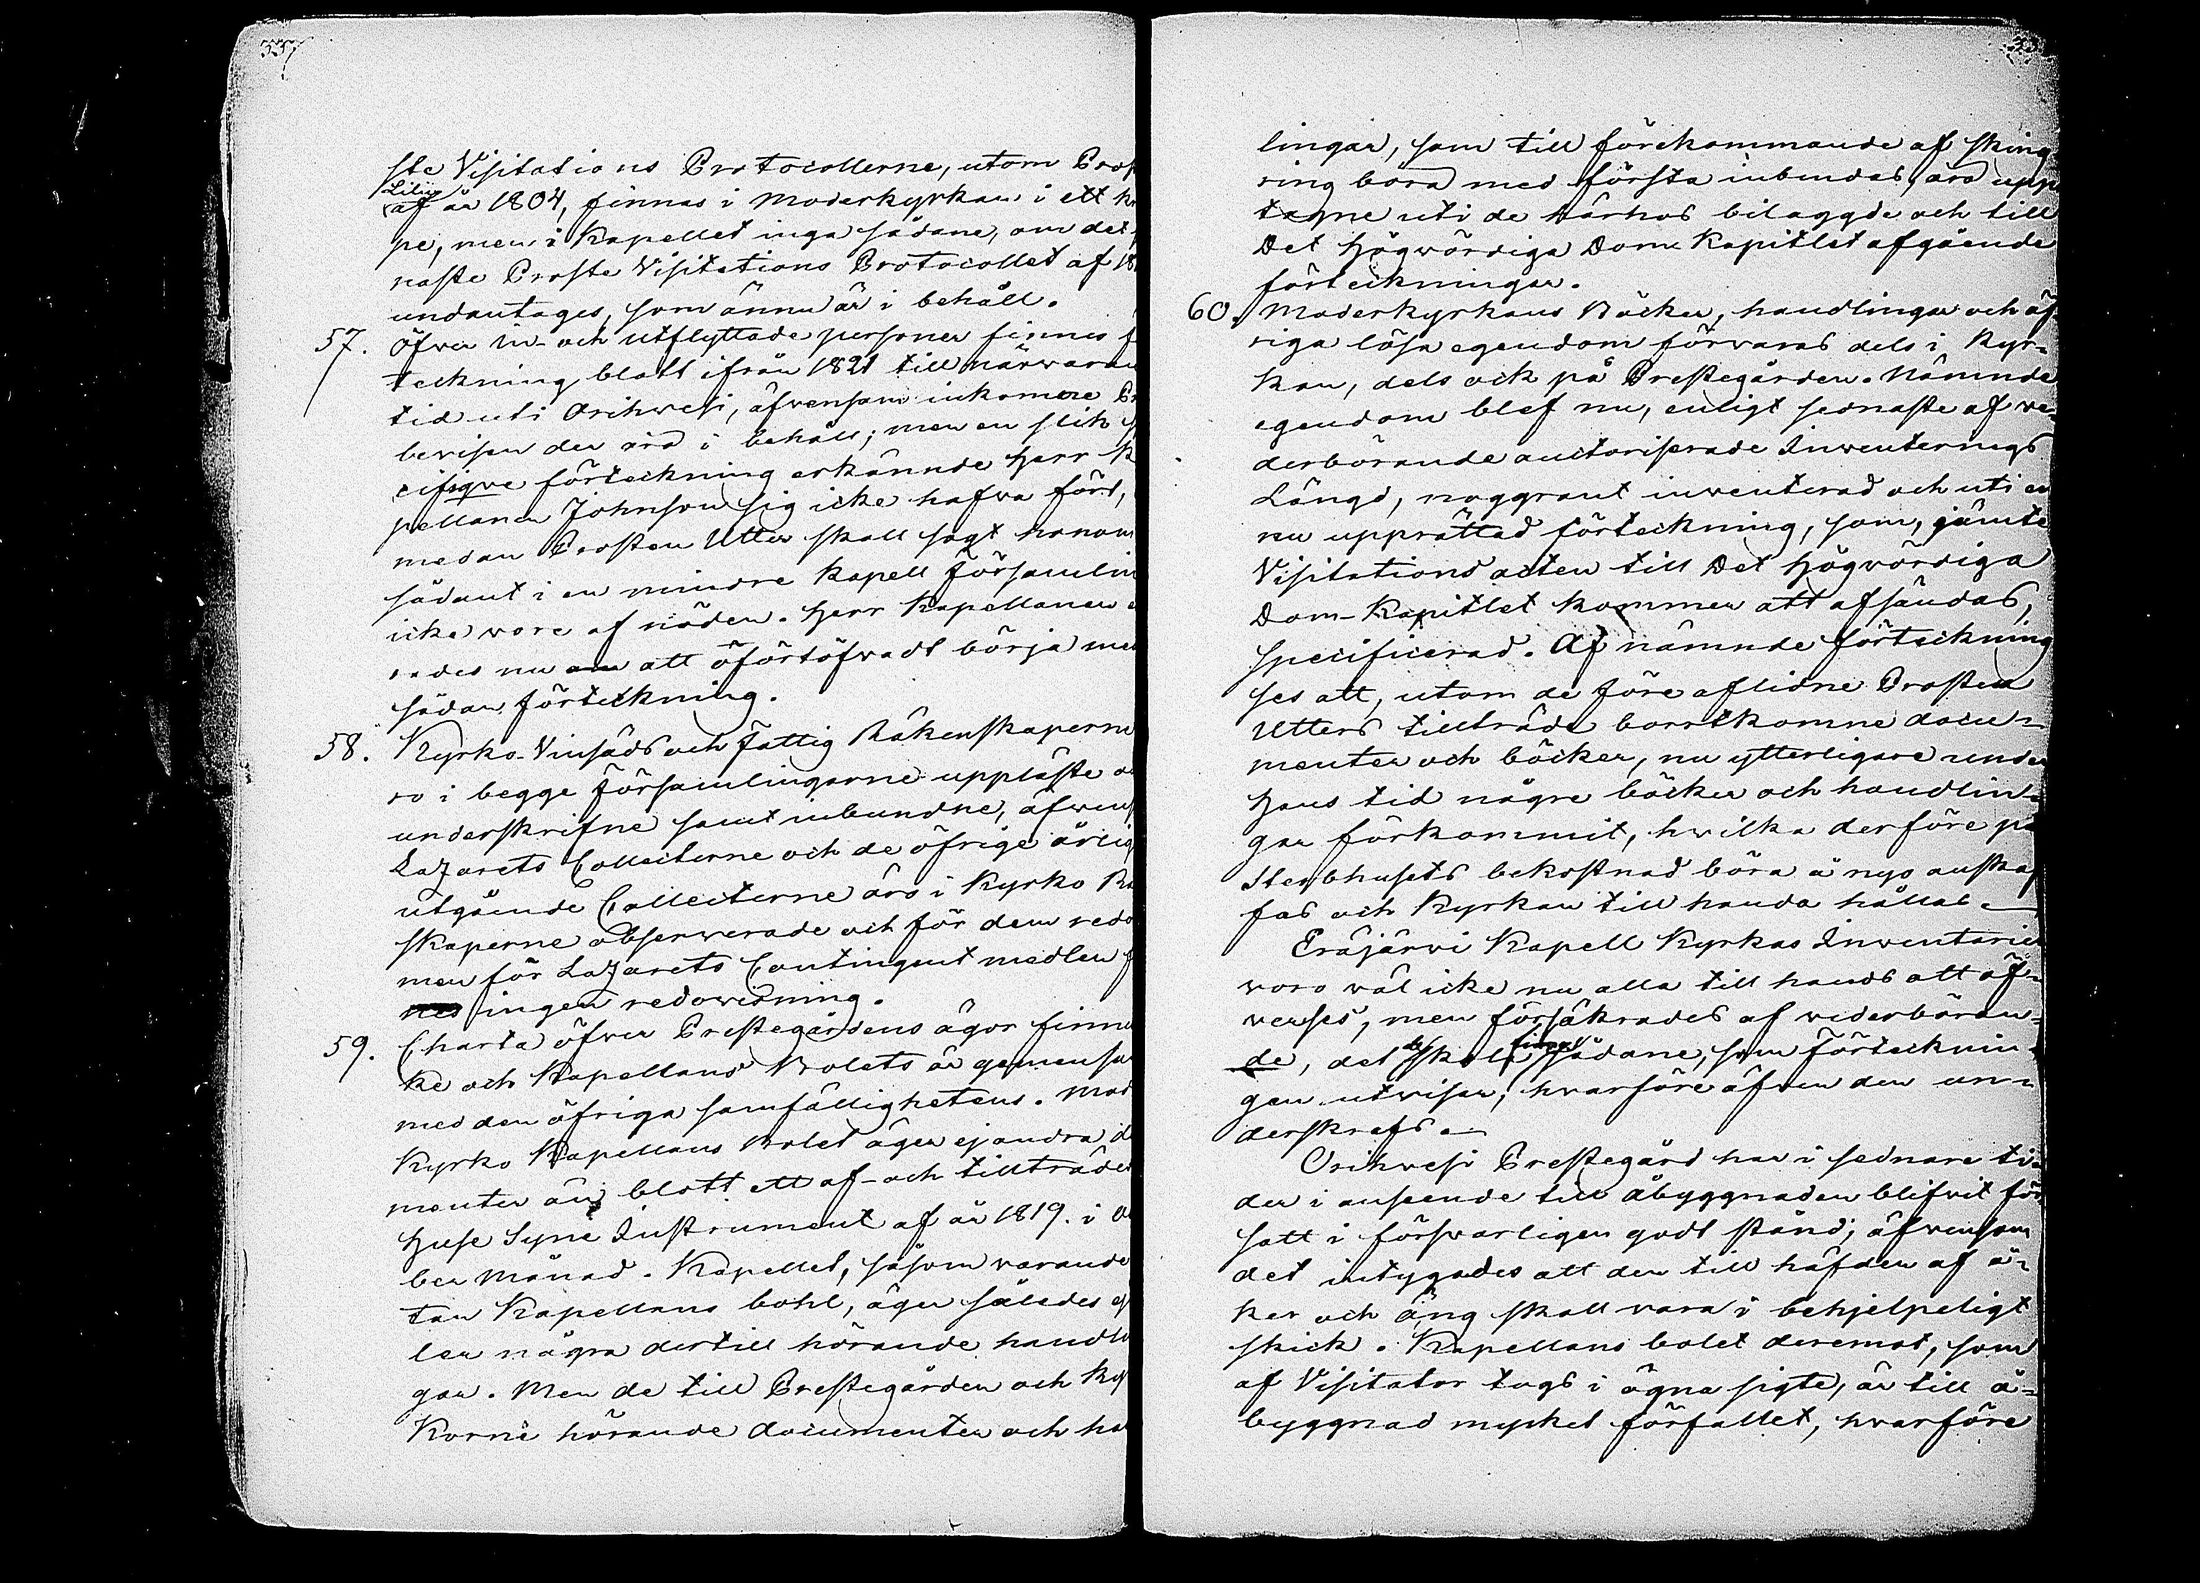 337
ste Visitations Protocollerne, utom Pros
Lilii
af år 1804, finnas i Moderkyrkan i ett k
pe, men i Kapellet inga sådane, om det
naste Proste Visitations Protocollet af 18
undantages, som ännu är i behåll.
57. Öfver in- och utflyttade personer finnes f
teckning blott ifrån 1821 till närvaran
tid uti Orihvesi, äfvensom inkomne Pr
bevisen der äro i behåll; men en slik s
cifique förteckning erkännde Herr K
pellanen Johnson sig icke hafva fört,
medan Prosten Utter skall sagt honom
sådant i en mindre Kapell Församlin
icke vore af nöden. Herr Kapellanen
rades nu att oförtöfvadt börja med
sådan förteckning.
58. Kyrko- Vinsäds och Fattig Räkenskaperne
ro i begge Församlingarne uppläste o
underskrifne samt inbundne, äfvens
Lazarets Collecterne och de öfrige årlig
utgående Collecterne äro i Kyrko Rä
skaperne observerade och för dem redo
men för Lazarets Contingent medlen f
nes ingen redovisning.
59. Charta öfver Prestegårdens ägor finne
ke och Kapellans Bolets är gemensa
med den öfriga samfällighetens. Mod
Kyrko Kapellans Bolet äger ej andra d
menter än blott ett af- och tillträdes
Huse Syne Instrument af år 1819. i O
ber Månad. Kapellet, såsom varande
tan Kapellans bohl, äger således ej
ler några dertill hörande handli
gar. Men de till Prestegården och Kyr
korne hörande documenter och ha
lingar, som till förekommande af sking
ring böra med första inbindas, äro upp
tagne uti de härhos bilaggde och till
Det Högvördiga Dom Kapitlet afgående
förteckningar.
60. Moderkyrkans Böcker, handlingar och öf
riga lösa egendom förvaras dels i Kyr-
kan, dels ock på Prestegården. Nämnde
egendom blef nu, enligt sednaste af ve-
derbörande auctoriserade Inventerings
Längd, noggrant inventerad och uti en
nu upprättad förteckning, som, jämte
Visitations acten till Det Högvördiga
Dom-Kapitlet kommer att afsändas,
specificerad. Af nämnde förteckning
ses att, utom de före aflidne Prosten
Utters tillträde bortkomne docu-
menter och böcker, nu ytterligare under
Hans tid någre böcker och handlin-
gar förkommit, hvilka derföre på
Sterbhusets bekostnad böra å nyo anskaf
fas och Kyrkan till handa hållas.
Eräjärvi Kapell Kyrkas Inventarier
voro väl icke nu alla till hands att öf-
verses, men försäkrades af vederböran-
de, det de skola finnas sådane, som Förtecknin-
gen utvisar; hvarföre äfven den un-
derskrefs.
Orihvesi Prestegård har i sednare ti-
der i anseende till åbyggnaden blifvit för
satt i försvarligen godt stånd; äfvensom
det intygades att den till häfden af å-
ker och äng skall vara i behjelpeligt
skick. Kapellans bolet deremot, som
af Visitator togs i ögna sigte, är till å-
byggnad mycket förfallet, hvarföre